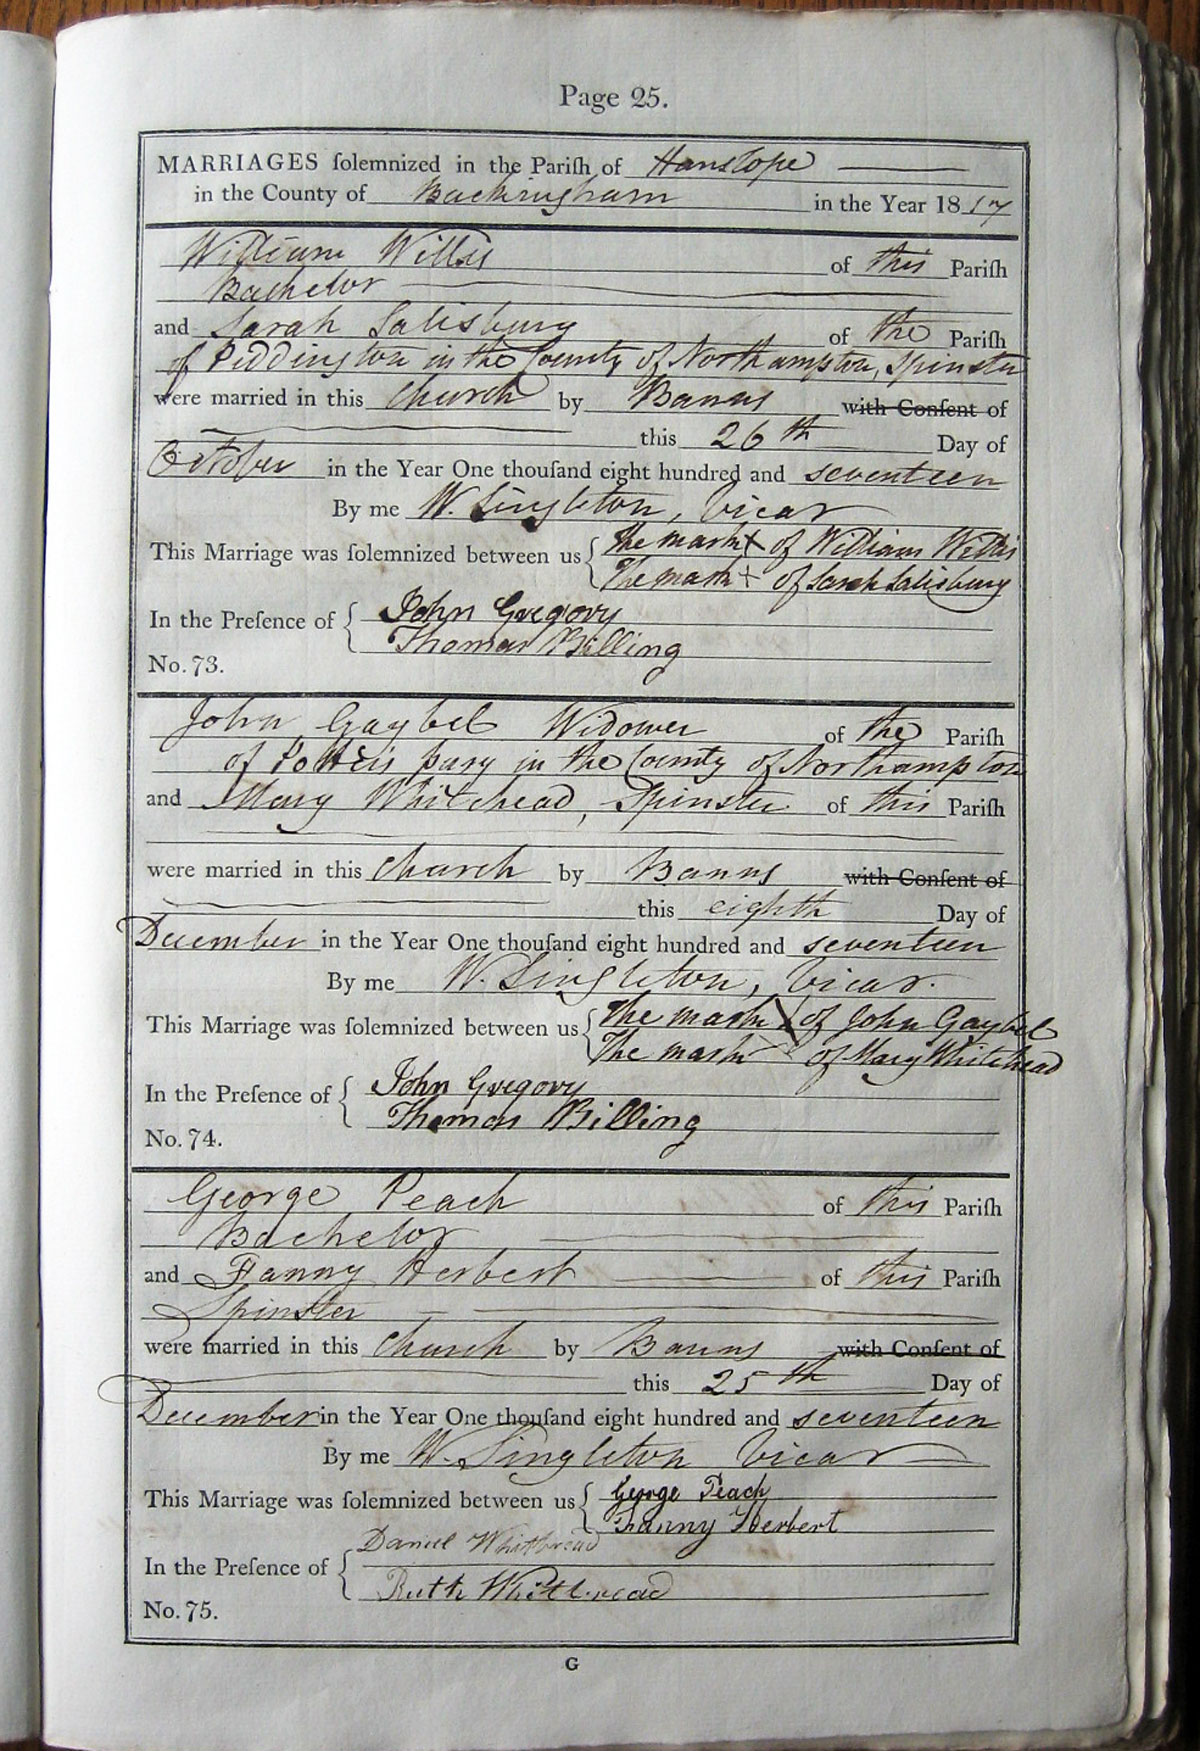 Page 25.
MARRIAGES ſolemnized in the Pariſh of Hanslope
in the County of Buckingham in the Year 1817
William Willis of this Pariſh
Bachelor
and Sarah Salisbury of the Pariſh
of Piddington in the County of Northampton, Spinster
were married in this Church by Banns with Conſent of
this 26th Day of
October in the Year One thouſand eight hundred and seventeen
By me W. Singleton, Vicar
This Marriage was ſolemnized between us The mark X of William Willis
The mark + of Sarah Salisbury
In the Preſence of John Gregory
Thomas Billing
No. 73.
John Gaybel Widower of the Pariſh
of Potters pury in the County of Northampton
and Mary Whitehead, Spinster of this Pariſh
were married in this Church by Banns with Conſent of
this eighth Day of
December in the Year One thouſand eight hundred and seventeen
By me W. Singleton, Vicar.
This Marriage was ſolemnized between us The mark X of John Gaybel
The mark X of Mary Whitehead
In the Preſence of John Gregory
Thomas Billing
No. 74.
George Peach of this Pariſh
Bachelor
and Fanny Herbert of this Pariſh
Spinster
were married in this Church by Banns with Conſent of
this 25th Day of
December in the Year One thouſand eight hundred and seventeen
By me W. Singleton Vicar
This Marriage was ſolemnized between us George Peach
Fanny Herbert
In the Preſence of Daniel Whitbread
Ruth Whitbread
No. 75.
G